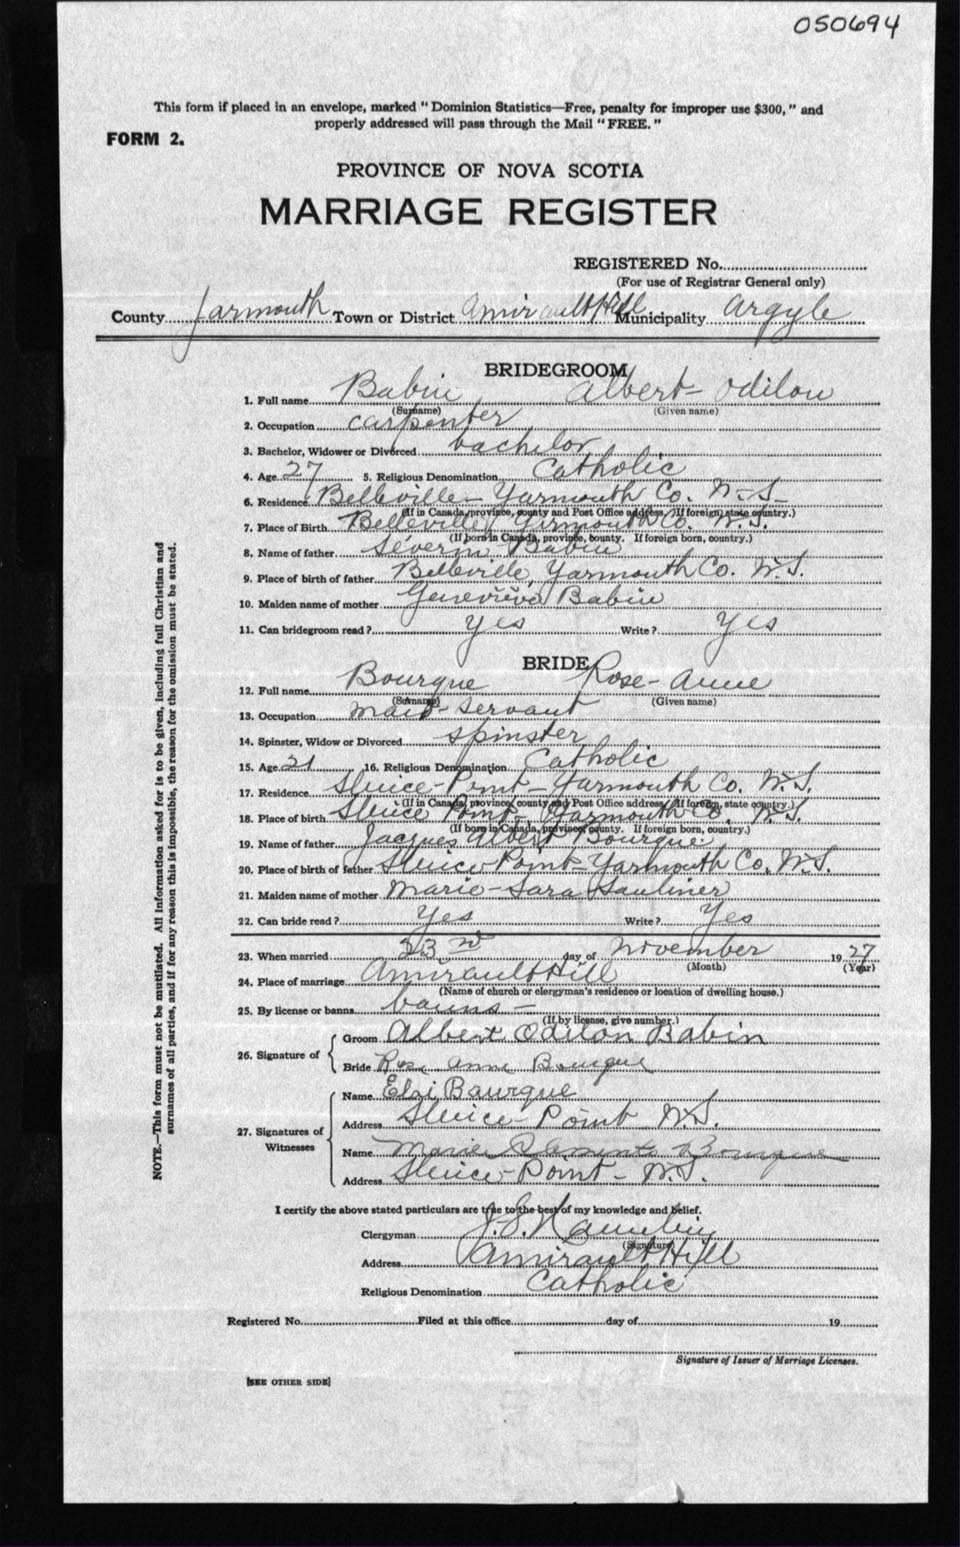 050694
This form if placed in an envelope, marked "Dominion Statistics—Free, penalty for improper use $300," and
properly addressed will pass through the Mail "FREE."
FORM 2.
PROVINCE OF NOVA SCOTIA
MARRIAGE REGISTER
REGISTERED No.
(For use of Registrar General only)
County Yarmouth Town or District Amirault Hill Municipality Argyle
BRIDEGROOM
1. Full name Babin Albert-Odilon
(Surname) (Given name)
2. Occupation carpenter
3. Bachelor, Widower or Divorced bachelor
4. Age 27 5. Religious Denomination Catholic
6. Residence Belleville - Yarmouth Co. N-S-
(If in Canada, province, county and Post Office address. If foreign, state country.)
7. Place of Birth Belleville, Yarmouth Co. N.S.
(If born in Canada, province, county. If foreign born, country.)
8. Name of father Séverin Babin
9. Place of birth of father Belleville, Yarmouth Co. N.S.
10. Maiden name of mother Geneviève Babin
11. Can bridegroom read? yes Write? yes
BRIDE
12. Full name Bourque Rose-Anne
(Surname) (Given name)
13. Occupation maid-servant
14. Spinster, Widow or Divorced spinster
15. Age 21 16. Religious Denomination Catholic
17. Residence Sluice-Point-Yarmouth Co. N.S.
(If in Canada, province, county and Post Office address. If foreign, state country.)
18. Place of birth Sluice Point-Yarmouth Co. N.S.
(If born in Canada, province, county. If foreign born, country.)
19. Name of father Jacques Albert Bourque
20. Place of birth of father Sluice-Point-Yarmouth Co. N.S.
21. Maiden name of mother Marie-Sara Saulnier
22. Can bride read? Yes Write? Yes
23. When married 23rd day of November 1927
(Month) (Year)
24. Place of marriage Amirault Hill
(Name of church or clergyman's residence or location of dwelling house.)
25. By license or banns banns-
(If by license, give number.)
26. Signature of
Groom Albert Odilon Babin
Bride Rose Anne Bourque
27. Signatures of
Witnesses
Name Elzi Bourque
Address Sluice-Point N.S.
Name Marie Bourque
Address Sluice-Point-N.S.
I certify the above stated particulars are true to the best of my knowledge and belief.
Clergyman
(Signature)
Address Amirault Hill
Religious Denomination Catholic
Registered No. Filed at this office day of 19
Signature of Issuer of Marriage Licenses.
[SEE OTHER SIDE]
NOTE.—This form must not be mutilated. All information asked for is to be given, including full Christian and
surnames of all parties, and if for any reason this is impossible, the reason for the omission must be stated.